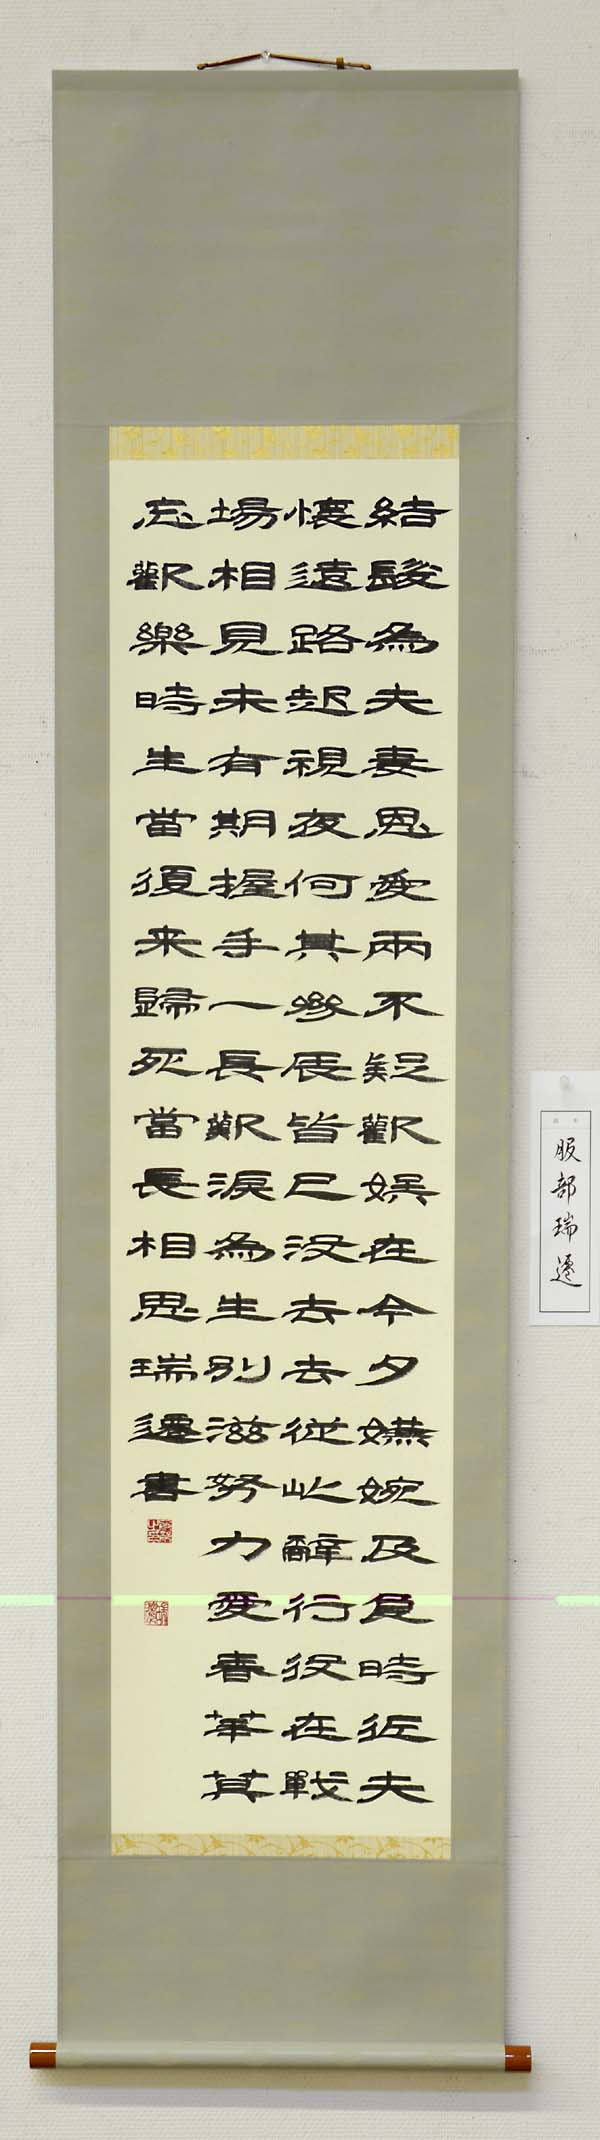 結髮為夫妻恩愛兩不疑歡娯在今夕嬿婉及良時征夫
懷遠路起視夜何其參辰皆已沒去去從此辭行役在戰
場相見未有期握手一長歎淚為生別滋努力愛春華莫
忘歡樂時生當復来歸死當長相思瑞遷書
服部瑞遷